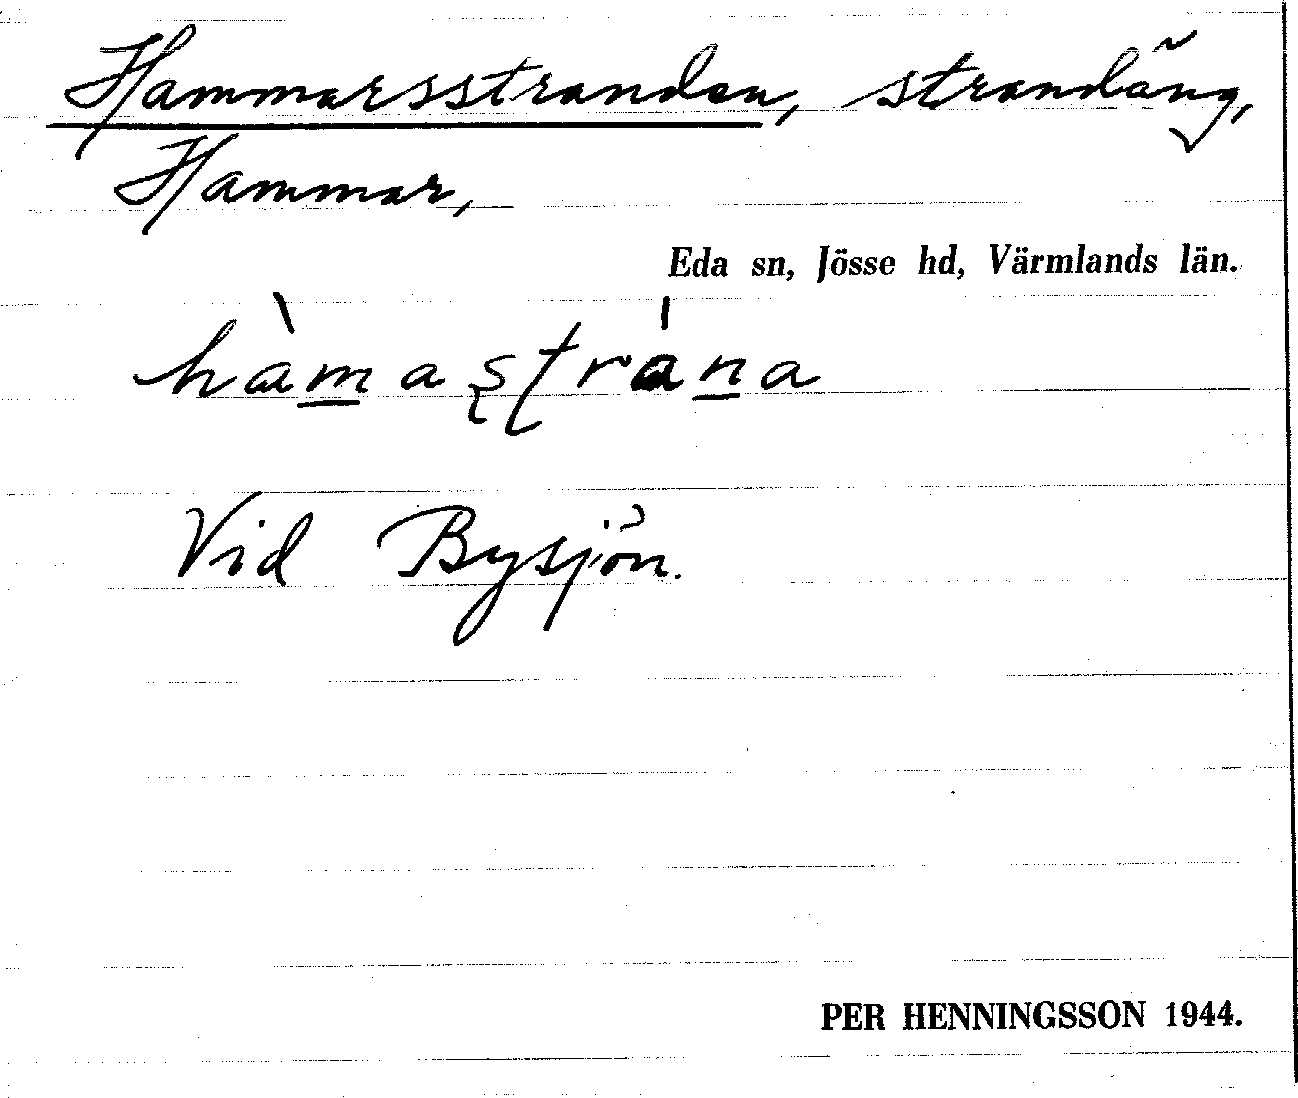 Hammarsstranden, strandäng,
Hammar,
Eda sn, Jösse hd, Värmlands län.
hàmaʂʈrána
Vid Bysjön.
PER HENNINGSSON 1944.